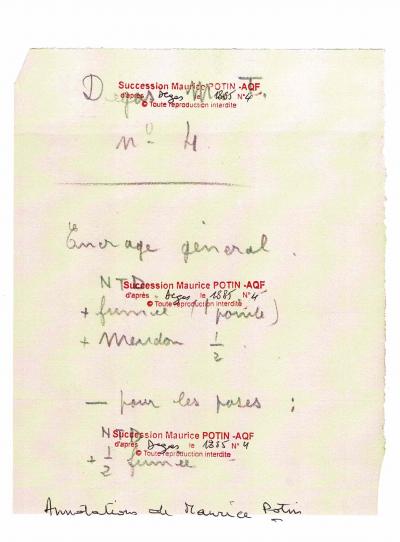 Degas M. T.
Succession Maurice POTIN -AQF
d'après Degas le 1885 N°4
© Toute reproduction interdite
n° 4.
Encrage général.
N T D
Succession Maurice POTIN -AQF
d'après Degas le 1885 N°4
© Toute reproduction interdite
+ fumée (1 pointe)
+ Meudon 1/2
— pour les poses :
N T D
Succession Maurice POTIN -AQF
d'après Degas le 1885 N° 4
© Toute reproduction interdite
+ 1/2 fumée
Annotations de Maurice Potin